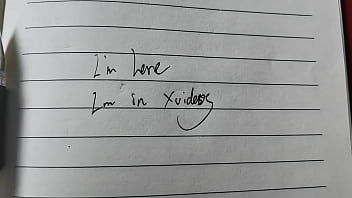 I'm here
Im in xvideos